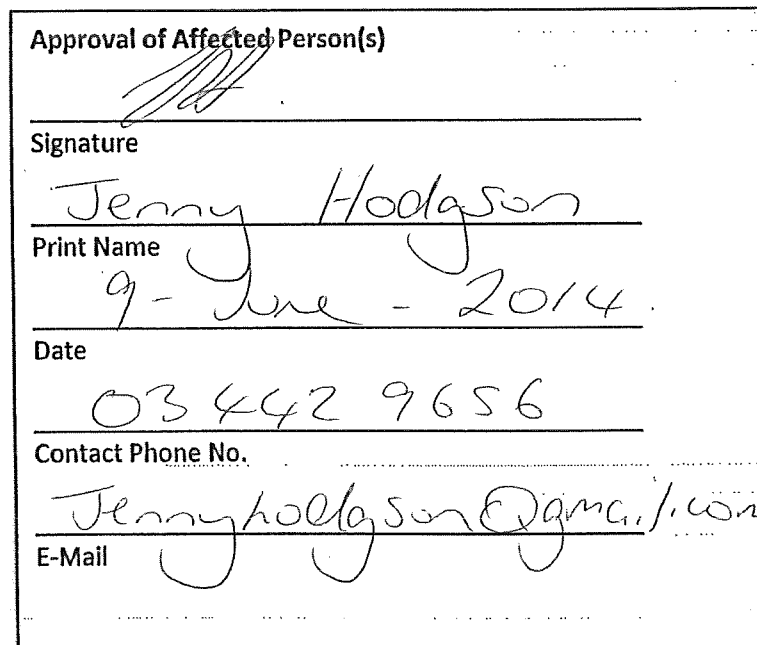 Approval of Affected Person(s)
Signature
Jenny Hodgson
Print Name
9 - June - 2014.
Date
03 442 9656
Contact Phone No.
Jennyhodgson@gmail.com
E-Mail